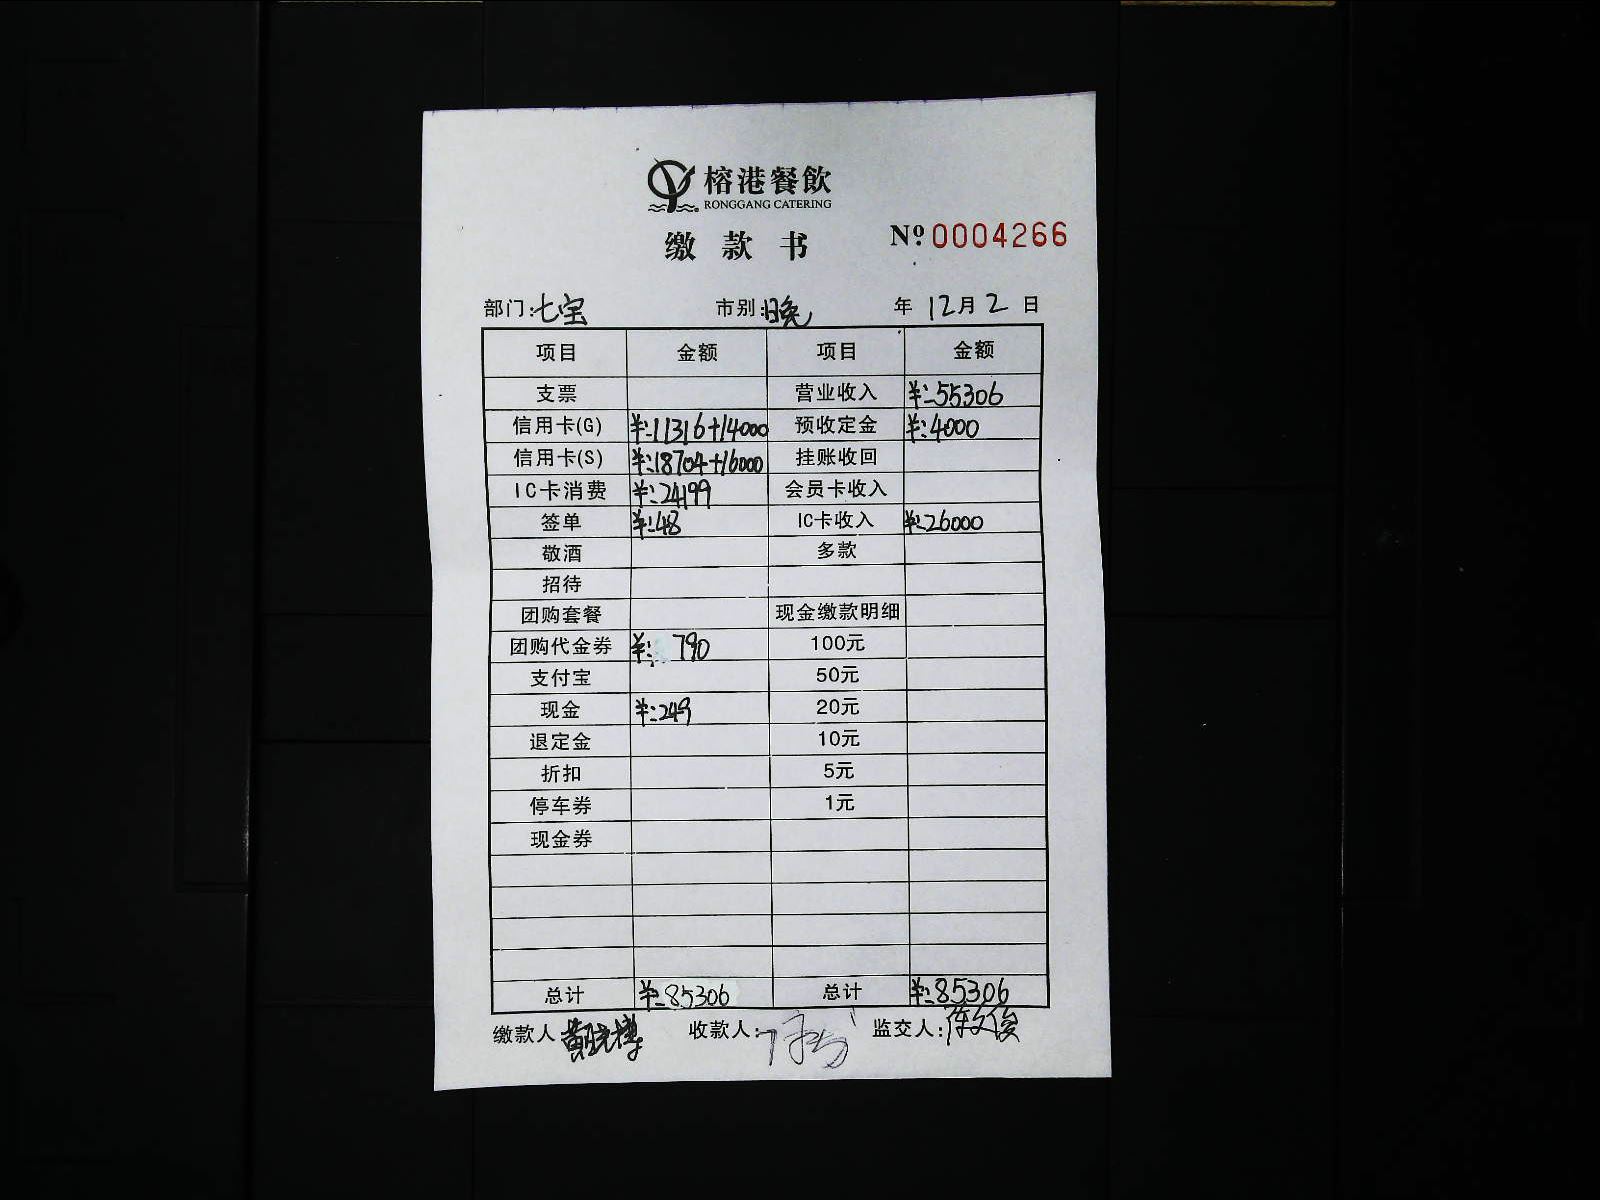 榕港餐飲
RONGGANG CATERING
缴款书 Nº 0004266
部门:七宝 市别:晚 年 12月 2 日
项目 金额 项目 金额
支票 营业收入 ¥:55306
信用卡(G) ¥:11316+14000 预收定金 ¥:4000
信用卡(S) ¥:18704+16000 挂账收回
IC卡消费 ¥:24199 会员卡收入
签单 ¥:48 IC卡收入 ¥:26000
敬酒 多款
招待
团购套餐 现金缴款明细
团购代金券 ¥: 790 100元
支付宝 50元
现金 ¥:249 20元
退定金 10元
折扣 5元
停车券 1元
现金券
总计 ¥:85306 总计 ¥:85306
缴款人 收款人: 监交人: